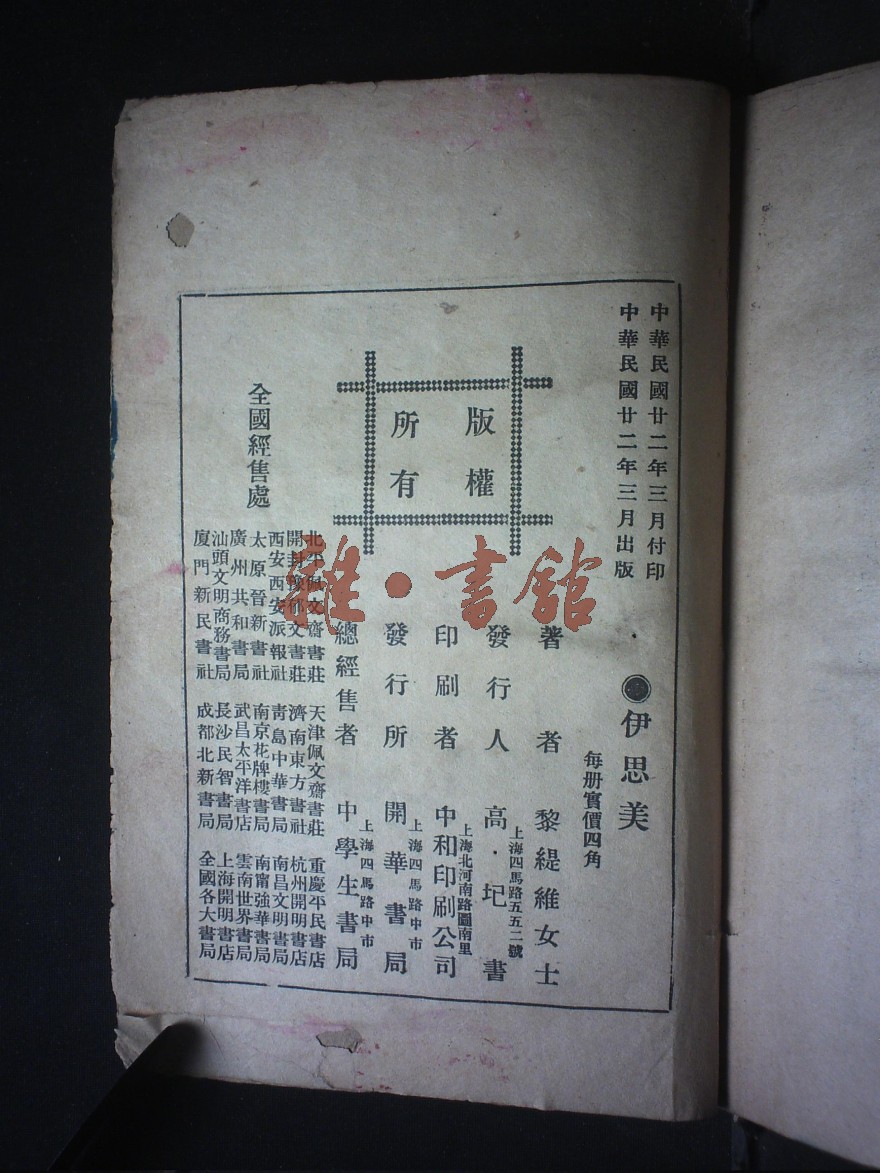 中華民國廿二年三月付印
中華民國廿二年三月出版
伊思美
每册實價四角
版權
所有
著者 黎緹維女士
發行人 高·圯書
上海四馬路五五二號
印刷者 中和印刷公司
上海北河南路圖南里
發行所 開華書局
上海四馬路中市
總經售者 中學生書局
上海四馬路中市
全國經售處
北平佩文齋書莊 天津佩文齋書莊 重慶平民書店
開封豫郁文書莊 濟南東方書社 杭州開明書店
西安西安派報社 青島中華書局 南昌文明書局
太原晉新書社 南京花牌樓書局 南甯強華書局
廣州共和書局 武昌太平洋書店 雲南世界書局
汕頭文明商務書局 長沙民智書局 上海開明書店
廈門新民書社 成都北新書局 全國各大書局
雜·書館